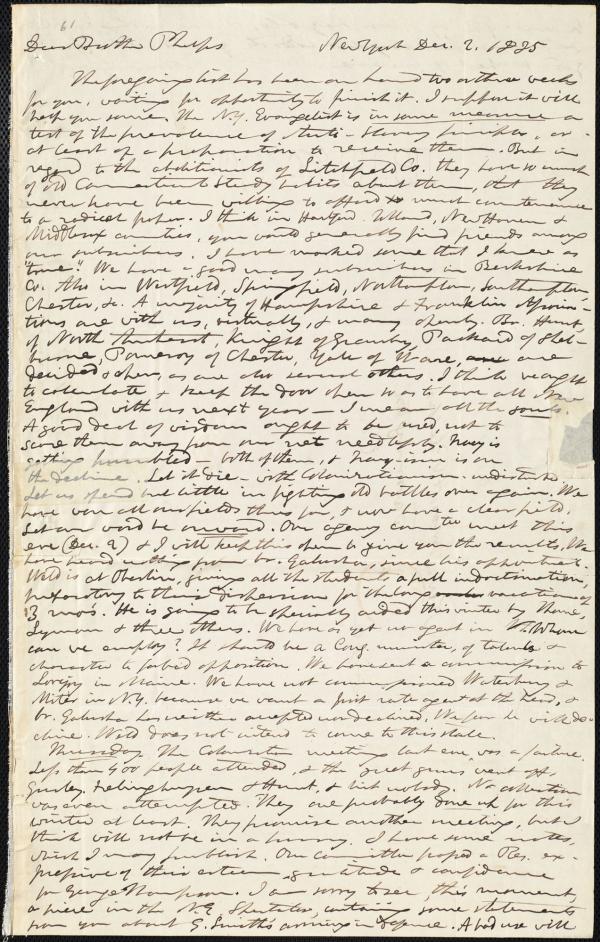 61
Dear Brother Phelps New York Dec. 2. 1835
The foregoing list has been on hand two or three weeks
for you, waiting for opportunity to finish it. I suppose it will
help you some. The N.Y. Evangelist is in some measure a
test of the prevalence of Anti-Slavery principles, or
at least of a preparation to receive them. But in
regard to the abolitionists of Litchfield Co. they have so much
of old Connecticut Steady habits about them, that they
never have been willing to afford much countenance
to a radical paper. I think in Hartford, Tolland, New Haven &
Middlesex counties, you would generally find friends among
our subscribers. I have marked some that I know as
"true." We have a good many subscribers in Berkshire
Co. Also in Westfield, Springfield, Northampton, Southampton,
Chester, &c. A majority of Hampshire & Franklin Associa-
tions are with us, virtually, & many openly. Br. Hunt,
of North Amherst, Knight of Granby, Packard of Shel-
burne, Pomeroy of Chester, Yale of Ware, are
decided & open as are also several others. I think we ought
to calculate & keep the door open so as to have all New
England with us next year — I mean all the souls.
A good deal of wisdom ought to be used, not to
scare them away from our net needlessly.
getting humbled — both of them, & is on
the decline. Let it die — with Colonizationism — undisturbed.
Let us spend but little in fighting old battles over again. We
have won all our fields thus far, & now have a clear field.
Let our word be onward. Our agency com.tee meet this
eve (Dec. 2) & I will keep this open to give you the results. We
have heard nothing from br. Galusha, since his appointment.
Weld is at Oberlin, giving all the students a full indoctrination,
preparatory to their dispersion for the long vacation of
3 mos. He is going to be specially aided this winter by Thome,
Lyman & three others. We have as yet no agent in Vt. Whom
can we employ? It should be a Cong. minister, of talents &
character to forbid opposition. We have sent a commission to
Lovejoy in Maine. We have not commissioned Waterbury &
Miter in N.Y. because we want a first rate agent at the head, &
br. Galusha has neither accepted nor declined. We fear he will de-
cline. Weld does not intend to come to this state.
Thursday. The Colonization meeting last eve, was a failure.
Less than 400 people attended, & the great guns went off,
Gurley, Frelinghuysen & Hunt, & hit nobody. No collection
was even attempted. They are probably done up for this
winter at least. They promise another meeting, but I
think will not be in a hurry. I have some notes,
which I may publish. Our Committee passed a Res. ex-
pressive of their esteem, gratitude & confidence
for George Thompson. I am sorry to see, this moment,
a piece in the N.E. Spectator, containing some statements
from you about G. Smith's in defence. A bad use will